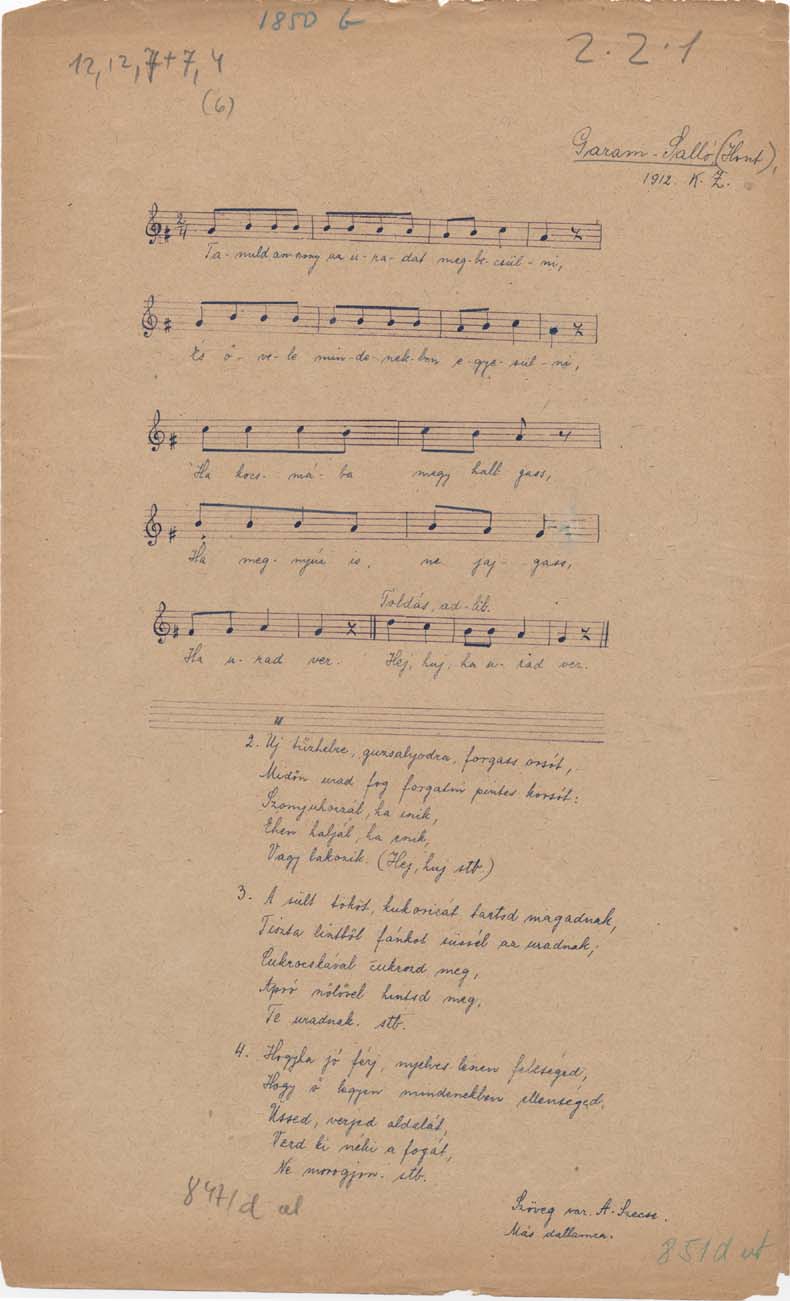 1850 b
12, 12, 7+7, 4
(6)
2.2.1
Garam-Salló (Hont),
1912. K. Z.
2/4
Ta-nuld asszony uradat meg-be-csül-ni,
És ő-ve-le min-de-nek-ben e-gye-sül-ni,
Ha kocs-má-ba megy hallgass,
Ha meg-nyúz is, ne jaj-gass,
Toldás, ad-lib.
Ha u-rad ver. Hej, huj, ha u-rad ver.
2. Uj tűzhelre, guzsalyodra, forgass orsót,
Midőn urad fog forgatni pintes korsót:
Szomjuhozzál, ha iszik,
Éhen haljál, ha eszik,
Vagy lakozik. (Hej, huj stb.)
3. A sült tököt, kukoricát tartsd magadnak,
Tiszta lisztből fánkot süssél az uradnak;
Cukrocskával cukrozd meg,
Apró szőlővel hintsd meg,
Te uradnak. stb.
4. Hogyha jó férj, nyelves leszen feleséged,
Hogy ő légyen mindenekben ellenséged.
Üssed, verjed oldalát,
Verd ki néki a fogát,
Ne morogjon. stb.
847/d al
Szöveg var. A-Szecse.
Más dallamra.
851 d